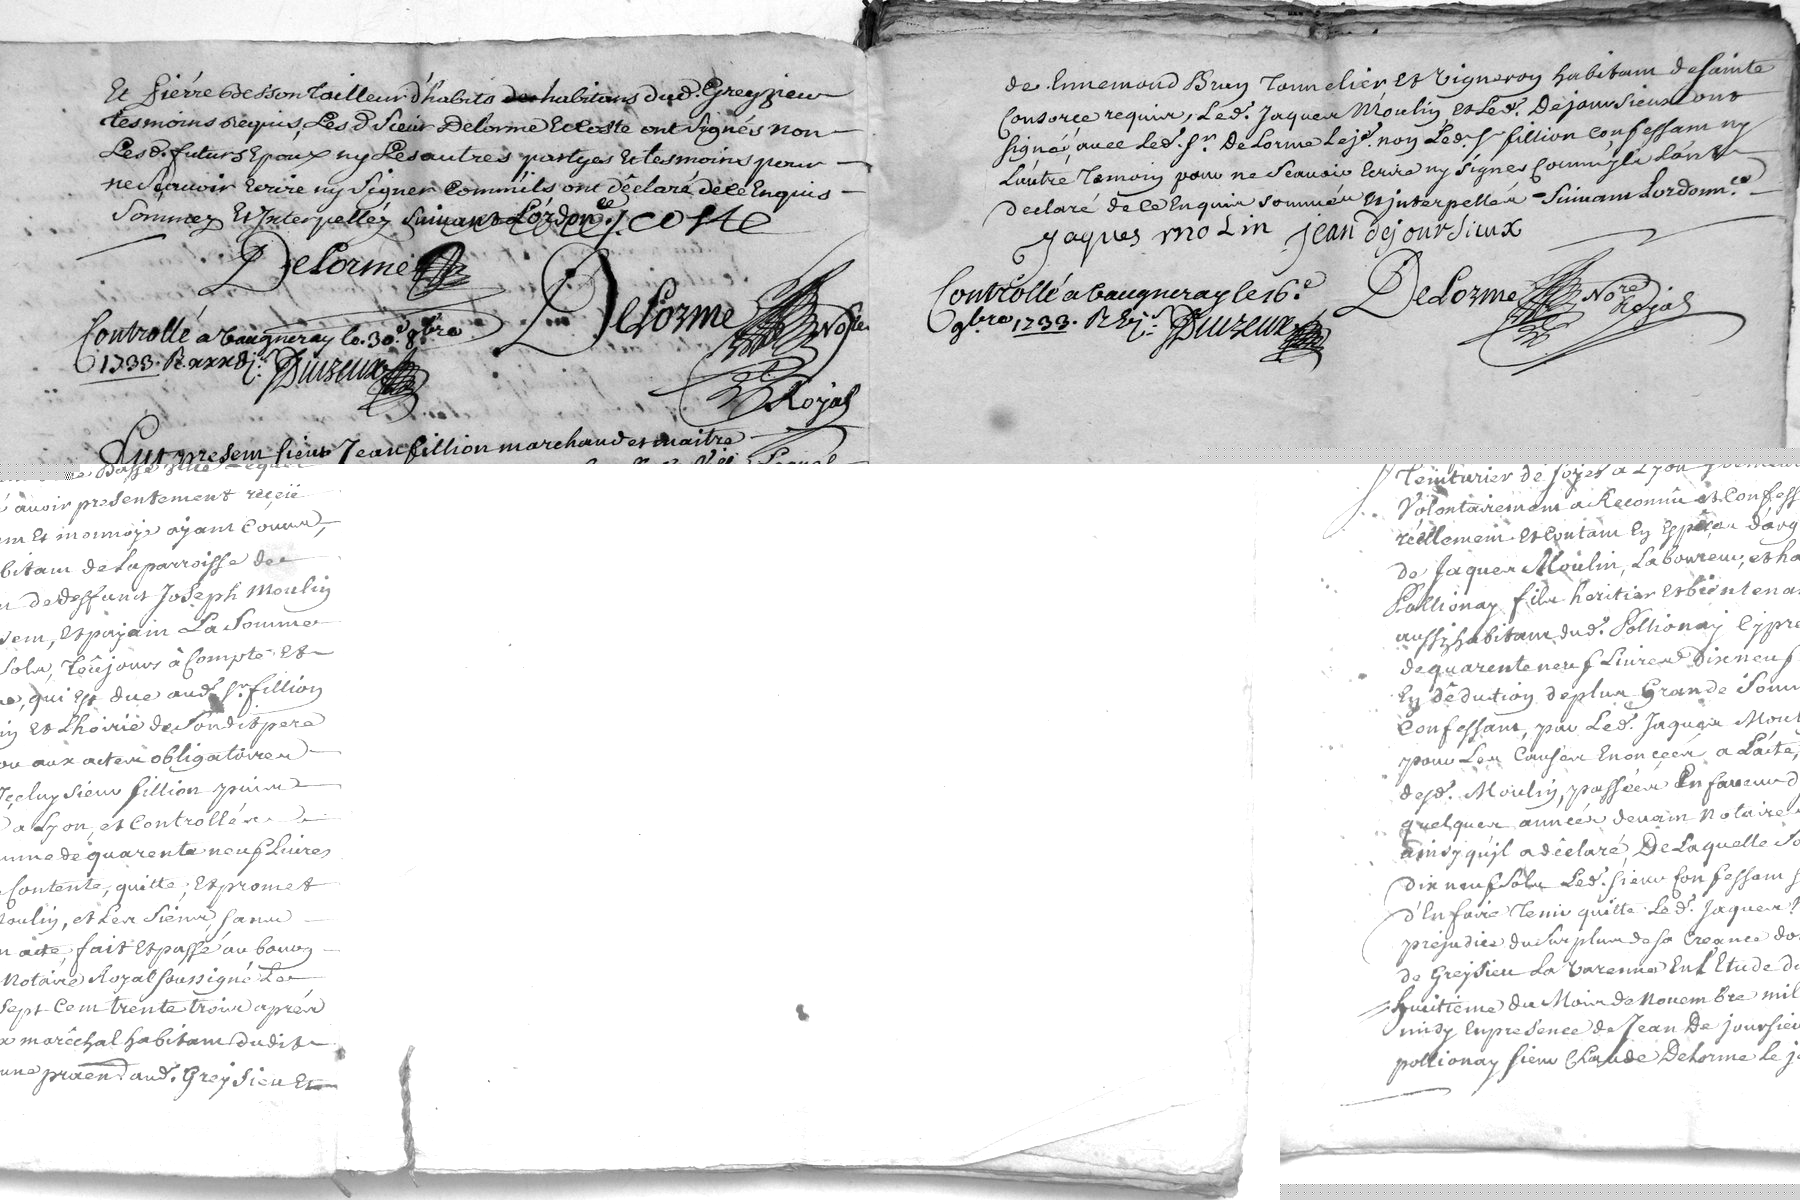 Et Pierre Besson Tailleur d'habits des habitans dud. Greyzieu
tesmoins Requis, Les d. Sieur Delorme Et Coste ont Signés non
Les d. futurs Epoux ny Les autres partyes Et tesmoins pour
ne Scavoir Ecrire ny Signer Comm'ils ont déclaré de ce Enquis
Sommez Et Interpelléz Suivant L'ordon.ce J. COSTE
Delorme
Delorme No.re
Royal
Controllé a Vaugneray le 30.e 8bre
1733. R. xxx
Fut present Sieur Jean fillion marchand et maitre
de Ennemond Brun Tonnelier Et Vigneron habitant de Sainte
Consorce requis, Le d. Jaques Moulin et Le d. Dejoursieux ont
Signé, avec Le d. Sr. Delorme Le je. non Le d. Sr fillion Confessant ny
L'autre Temoin pour ne Scavoir Ecrire ny Signer Comm'jls L'ont
declaré de ce Enquis sommés Et jnterpellés Suivant L'ordonn.ce
jaques moLin jean dejoursieux
Delorme No.re
Royal
Controllé a Vaugneray le 16.e
9bre 1733. R
avoir presentement reçeü
Et monnoye ayant Cours,
habitant de La parroisse de
de deffunct Joseph Moulin
Et payain La Somme
Sols, Toûjours à Compte Et
qui Est due aud. Sr. fillion
Et L'hoirie de Son dit pere
aux actes obligatoires
jceluy Sieur fillion
a Lyon, et Controllés
de quarente neuf Livres
Contente, quitte, Et promet
Moulin, et Les Siens, Sans
acte, fait Et passé au bourg
Notaire Royal Soussigné Le
Sept Cent trente trois aprés
maréchal habitant dudit
aud. Greysieu Et
Teinturier de Soyes a Lyon
Volontairement a Reconnû et Confess
réellement Et Contant En Espéces d'arg
de Jaques Moulin, Laboureur, et ha
Pollionay fils heritier Et bientenan
aussy habitant dud. Pollionay Cypre
de quarente neuf Livres Dixneuf
En déduction de plus Grande Som
Confessant, par Le d. Jaques Moul
pour Les Causes Enoncées a L'acte,
ded. Moulin, passées En faveur d
quelques années devant Notaire
ainsy qu'jl a déclaré, De Laquelle So
dix neuf Sols Le d. Sieur Confessant S
d'En faire Tenir quitte Le d. Jaques
préjudice du Surplus de Sa Creance do
de Greysieu La Varenne En L'Etude du
huitiéme du Mois de Novembre mil
midy En presence de Jean Dejoursieu
pollionay Sieur Claude Delorme Le je